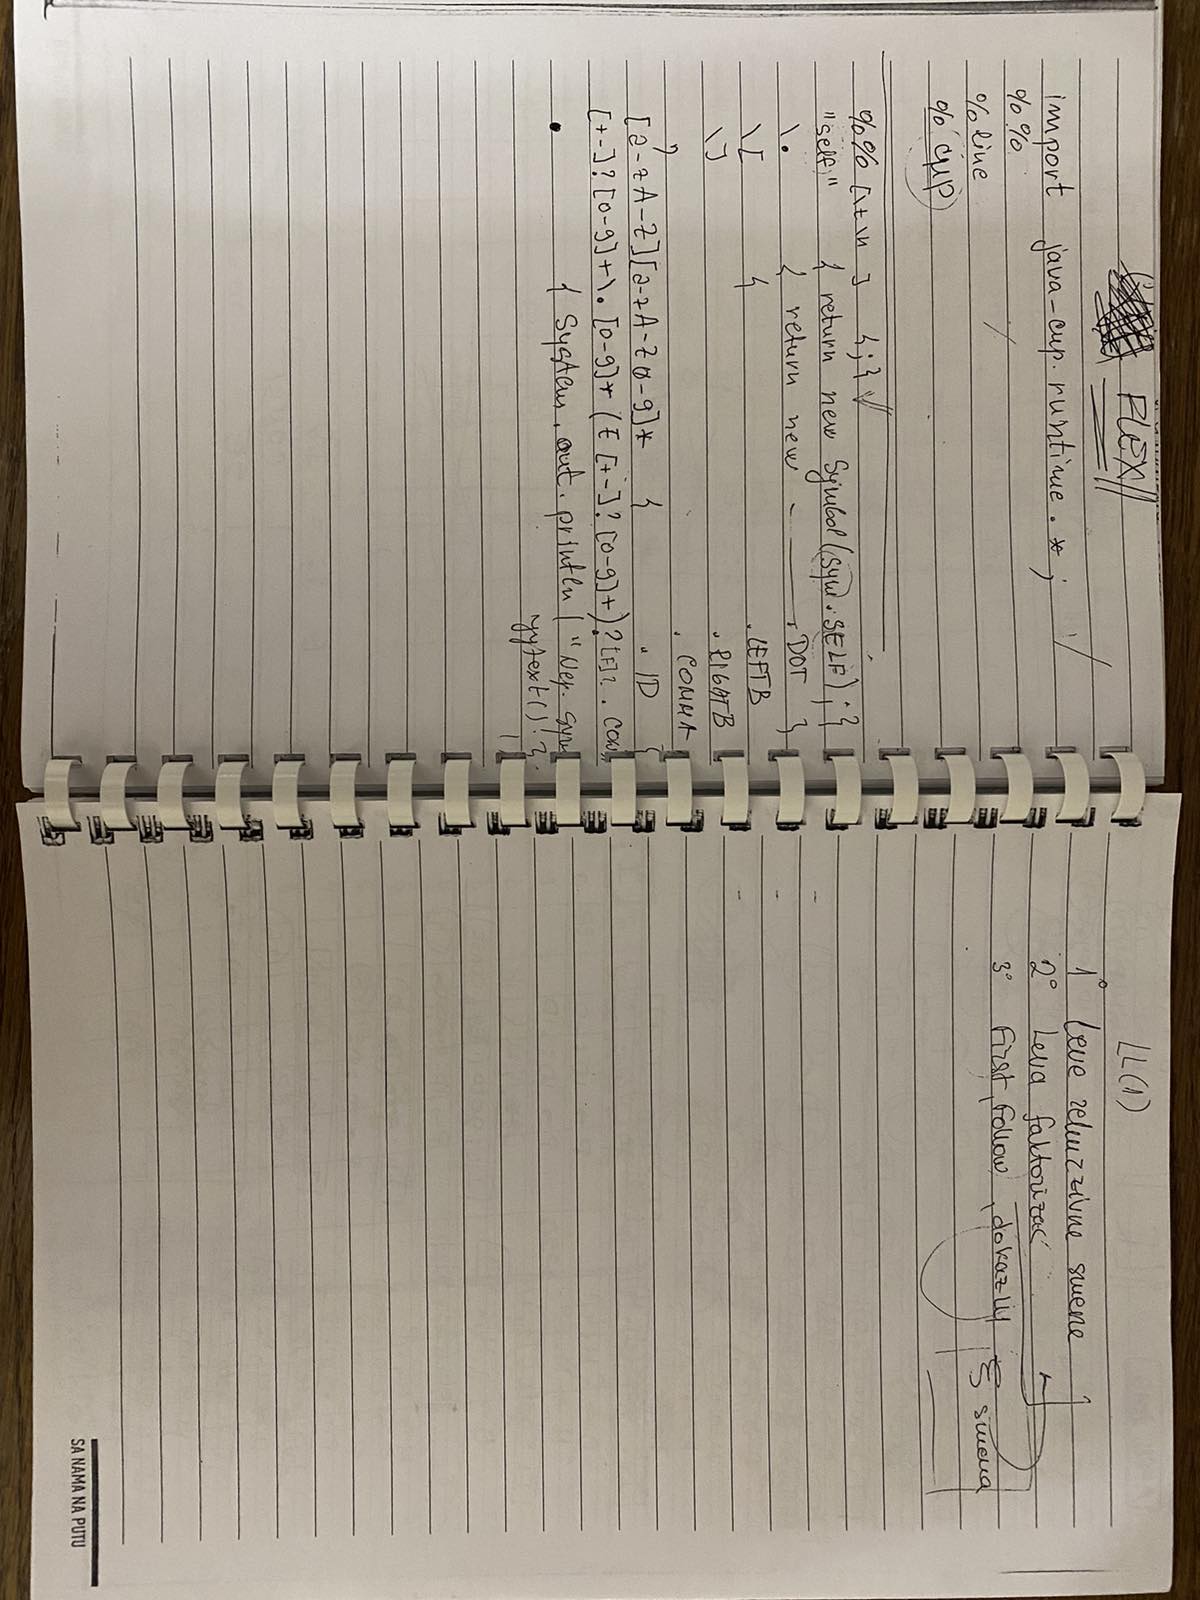 FLEX
import java-cup.runtime.*;
%%
%line
%cup
%% [\t\n ] {;}
"self" { return new Symbol(sym.SELF); }
\. { return new . DOT }
\[ { . LEFTB
\] . RIGHTB
, . COMMA
[a-zA-Z][a-zA-Z0-9]* { . ID }
[+-]?[0-9]+\.[0-9]*(E[+-]?[0-9]+)?[F]? . CON
. { System.out.println("Nep. sym
yytext() }
LL(1)
1° Leve rekurzivne smene
2° Leva faktorizać
3° First, Follow, dokaz LL1
ξ smena
SA NAMA NA PUTU